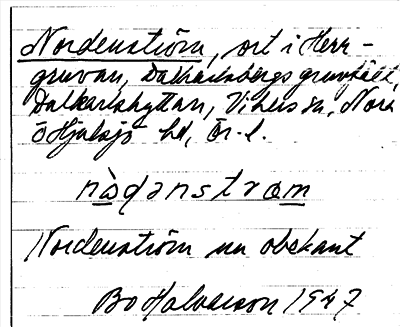 Nordenström, ort i Herr-
gruvan, Dalkarlsbergs gruvfält,
Dalkarlshyttan, Vikers sn, Nora
o Hjulsjö hd, Ör. l.
nòḍanstrœm
Nordenström nu obekant
Bo Halvarsson 1947